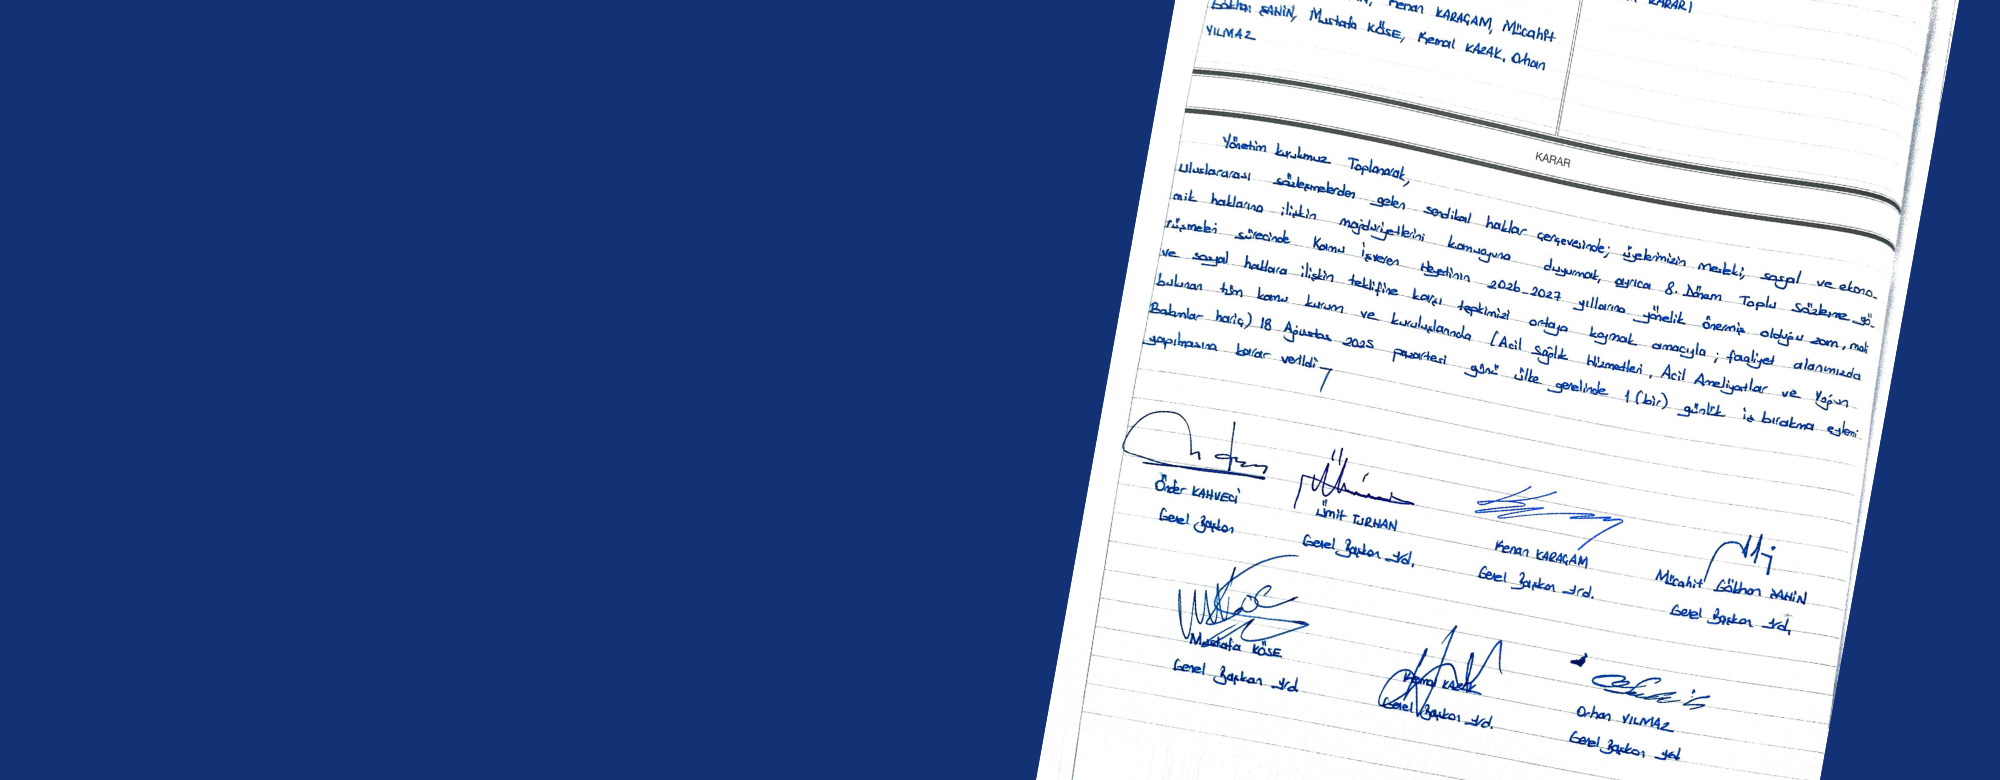 Kenan KARAÇAM, Mücahit
Gökhan ŞAHİN, Mustafa KÖSE, Kemal KAZAK, Orhan
YILMAZ
KARARI
KARAR
Yönetim kurulumuz Toplanarak,
uluslararası sözleşmelerden gelen sendikal haklar çerçevesinde; üyelerimizin mesleki, sosyal ve ekono-
mik haklarına ilişkin mağduriyetlerini kamuoyuna duyurmak, ayrıca 8. Dönem Toplu Sözleşme gö-
rüşmeleri sürecinde Kamu İşveren Heyetinin 2026-2027 yıllarına yönelik önermiş olduğu zam, mali
ve sosyal haklara ilişkin teklifine karşı tepkimizi ortaya koymak amacıyla; faaliyet alanımızda
bulunan tüm kamu kurum ve kuruluşlarında (Acil Sağlık Hizmetleri, Acil Ameliyatlar ve Yoğun
Bakımlar hariç) 18 Ağustos 2025 pazartesi günü ülke genelinde 1 (bir) günlük iş bırakma eylemi
yapılmasına karar verildi
Önder KAHVECİ
Genel Başkan
Ümit TURHAN
Genel Başkan Yrd.
Kenan KARAÇAM
Genel Başkan Yrd.
Mücahit Gökhan ŞAHİN
Genel Başkan Yrd.
Mustafa KÖSE
Genel Başkan Yrd
Kemal KAZAK
Genel Başkan Yrd.
Orhan YILMAZ
Genel Başkan Yrd